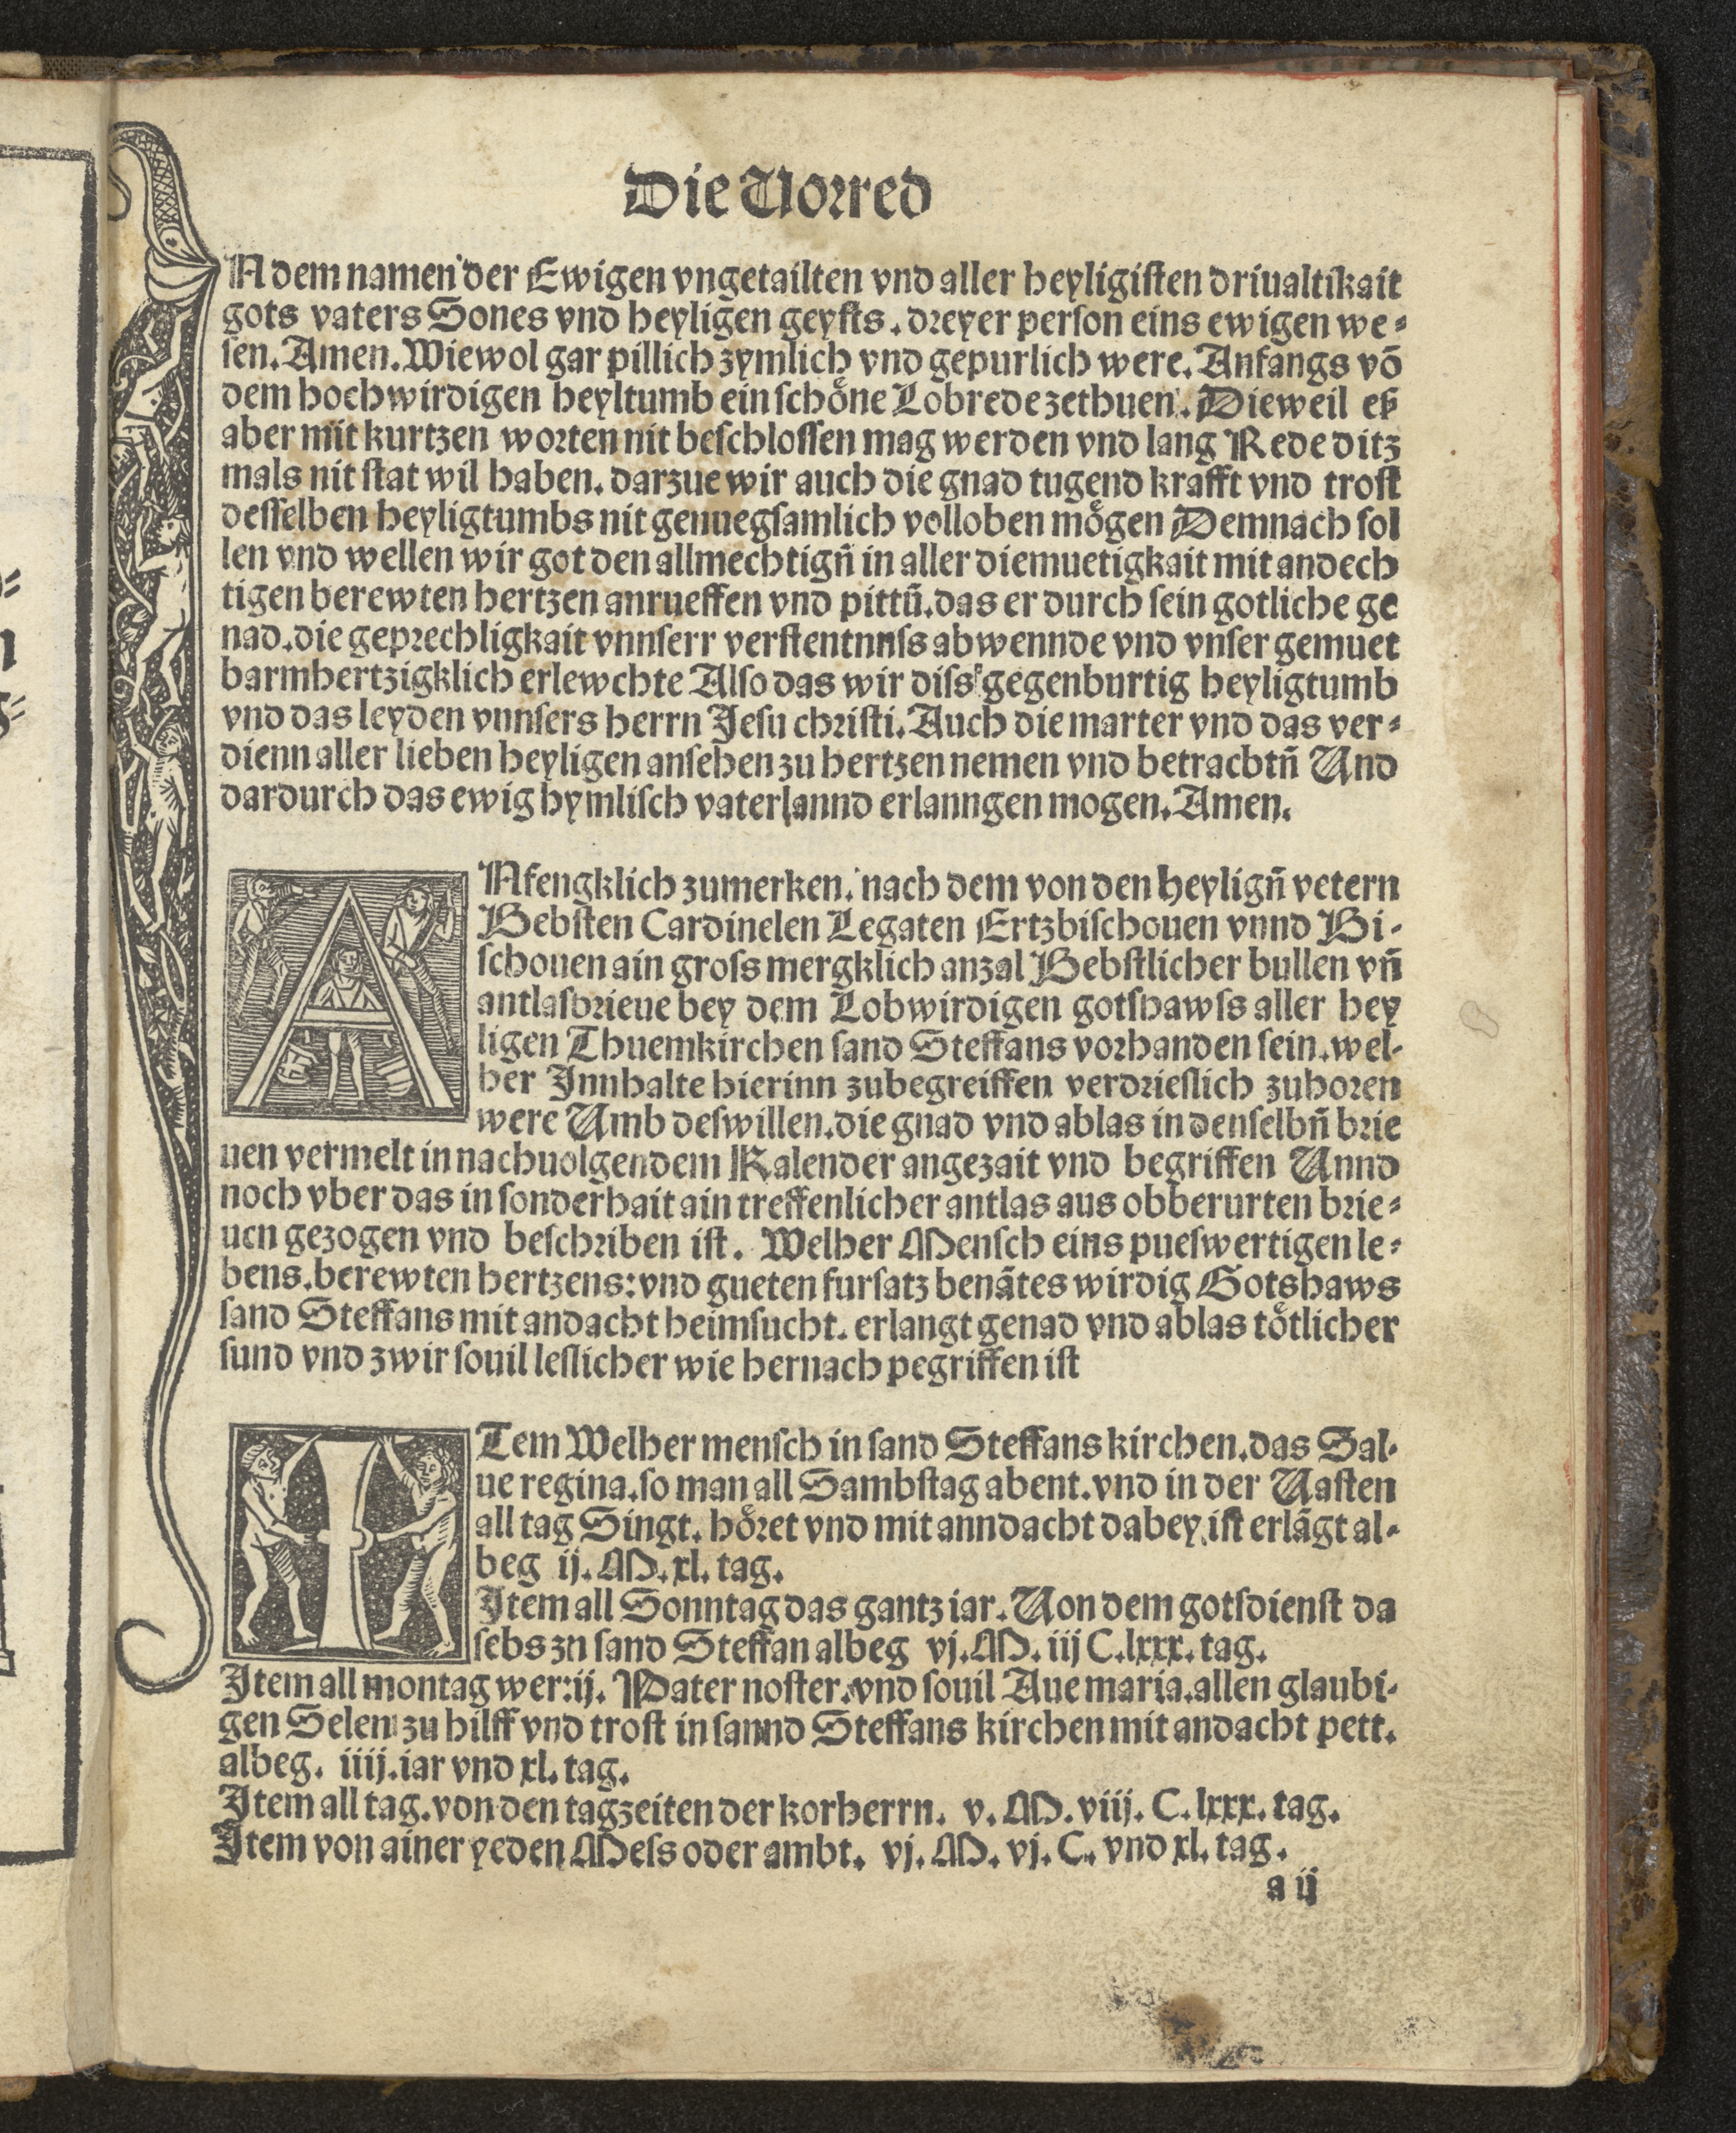 Die Vorred
IN dem namen der Ewigen vngetailten vnd aller heyligisten driualtikait
gots vaters Sones vnd heyligen geysts. dreyer person eins ewigen we⸗
sen. Amen. Wiewol gar pillich zymlich vnd gepurlich were. Anfangs vō
dem hochwirdigen heyltumb ein schoͤne Lobrede zethuen. Dieweil eß
aber mit kurtzen worten nit beschlossen mag werden vnd lang Rede ditz
mals nit stat wil haben. darzue wir auch die gnad tugend krafft vnd trost
desselben heyligtumbs nit genuegsamlich volloben moͤgen Demnach sol
len vnd wellen wir got den allmechtign̄ in aller diemuetigkait mit andech
tigen berewten hertzen anrueffen vnd pittn̄. das er durch sein gotliche ge
nad. die geprechligkait vnnserr verstentnnss abwennde vnd vnser gemuet
barmhertzigklich erlewchte Also das wir diss gegenburtig heyligtumb
vnd das leyden vnnsers herrn Jesu christi. Auch die marter vnd das ver⸗
dienn aller lieben heyligen ansehen zu hertzen nemen vnd betrachtn̄ Und
dardurch das ewig hymlisch vaterlannd erlanngen mogen. Amen.
ANfengklich zumerken. nach dem von den heylign̄ vetern
Bebsten Cardinelen Legaten Ertzbischouen vnnd Bi⸗
schouen ain gross mergklich anzal Bebstlicher bullen vn̄
antlasbrieue bey dem Lobwirdigen gotshawss aller hey
ligen Thuemkirchen sand Steffans vorhanden sein. wel⸗
her Innhalte hierinn zubegreiffen verdrieslich zuhoren
were Umb deswillen. die gnad vnd ablas in denselbn̄ brie
uen vermelt in nachuolgendem Kalender angezait vnd begriffen Unnd
noch vber das in sonderhait ain treffenlicher antlas aus obberurten brie⸗
uen gezogen vnd beschriben ist. Welher Mensch eins pueswertigen le⸗
bens. berewten hertzens: vnd gueten fursatz benātes wirdig Gotshaws
sand Steffans mit andacht heimsucht. erlangt genad vnd ablas toͤtlicher
sund vnd zwir souil leslicher wie hernach pegriffen ist
ITem Welher mensch in sand Steffans kirchen. das Sal⸗
ue regina. so man all Sambstag abent. vnd in der Uasten
all tag Singt. hoͤret vnd mit anndacht dabey ist erlāgt al⸗
beg ij. M. xl. tag.
Item all Sonntag das gantz iar. Uon dem gotsdienst da
sebs zu sand Steffan albeg vj. M. iij C. lxxx. tag.
Item all montag wer: ij. Pater noster. vnd souil Aue maria. allen glaubi⸗
gen Selen zu hilff vnd trost in sannd Steffans kirchen mit andacht pett.
albeg. iiij. iar vnd xl. tag.
Item all tag. von den tagzeiten der korherrn. v. M. viij. C. lxxx. tag.
Item von ainer yeden Mess oder ambt. vj. M. vj. C. vnd xl. tag.
a ij